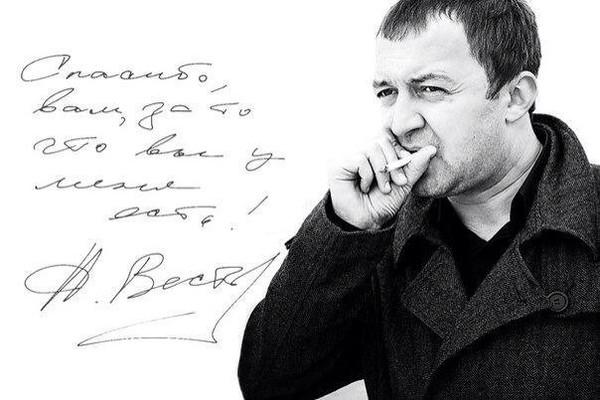 Спасибо,
вам, за то
что вы у
меня
есть!